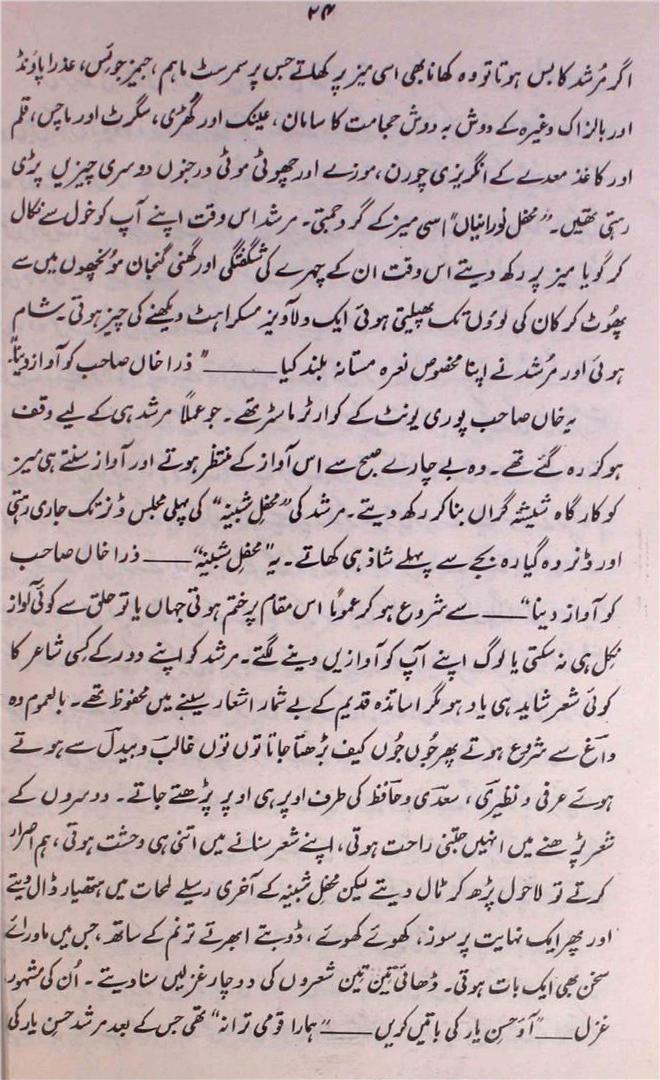 ۲۴
اگر مُرشد کا بس ہوتا تو وہ کھانا بھی اسی میز پر کھاتے جس پر سمرسٹ ماہم، جیمز جوئس، عذرا پاؤنڈ
اور بالزاک وغیرہ کے دوش بہ دوش حجامت کا سامان، عینک اور گھڑی، سگرٹ اور ماچس، قلم
اور کاغذ معدے کے انگریزی چورن، موزے اور چھوٹی موٹی درجنوں دوسری چیزیں پڑی
رہتی تھیں۔ "محفل نورانیاں" اسی میز کے گرد جمتی۔ مرشد اس وقت اپنے آپ کو خول سے نکال
کر گویا میز پر رکھ دیتے اس وقت ان کے چہرے کی شگفتگی اور گھنی گنجان مونچھوں میں سے
پھوٹ کر کان کی لوؤں تک پھیلتی ہوئی ایک دلآویز مسکراہٹ دیکھنے کی چیز ہوتی۔ شام
ہوئی اور مُرشد نے اپنا مخصوص نعرہ مستانہ بلند کیا ——— "ذرا خاں صاحب کو آواز دینا"۔
یہ خاں صاحب پوری یونٹ کے کوارٹر ماسٹر تھے۔ جو عملاً مرشد ہی کے لیے وقف
ہو کر رہ گئے تھے۔ وہ بے چارے صبح سے اس آواز کے منتظر ہوتے اور آواز سنتے ہی میز
کو کارگاہ شیشہ گراں بنا کر رکھ دیتے۔ مرشد کی "محفلِ شبینہ" کی پہلی مجلس ڈنر تک جاری رہتی
اور ڈنر وہ گیارہ بجے سے پہلے شاذ ہی کھاتے۔ یہ "محفلِ شبینہ" —— ذرا خاں صاحب
کو آواز دینا" —— سے شروع ہو کر عموماً اس مقام پر ختم ہوتی جہاں یا تو حلق سے کوئی آواز
نکل ہی نہ سکتی یا لوگ اپنے آپ کو آوازیں دینے لگتے۔ مرشد کو اپنے دور کے کسی شاعر کا
کوئی شعر شاید ہی یاد ہو مگر اساتذہ قدیم کے بے شمار اشعار سینے میں محفوظ تھے۔ بالعموم وہ
داغ سے شروع ہوتے پھر جُوں جُوں کیف بڑھتا جاتا توں توں غالب و بیدل سے ہوتے
ہوئے عرفی و نظیری، سعدی و حافظ کی طرف اوپر ہی اوپر چڑھتے جاتے۔ دوسروں کے
شعر پڑھنے میں انہیں جتنی راحت ہوتی، اپنے شعر سنانے میں اتنی ہی وحشت ہوتی، ہم اصرار
کرتے تو لاحول پڑھ کر ٹال دیتے لیکن محفلِ شبینہ کے آخری رسیلے لمحات میں ہتھیار ڈال دیتے
اور پھر ایک نہایت پرسوز، کھوئے کھوئے، ڈوبتے ابھرتے ترنم کے ساتھ، جس میں ماورائے
سخن بھی ایک بات ہوتی۔ ڈھائی تین تین شعروں کی دو چار غزلیں سنا دیتے۔ اُن کی مشہور
غزل —— "آؤ حسن یار کی باتیں کریں —— "ہمارا قومی ترانہ" تھی جس کے بعد مرشد حسن یار کی